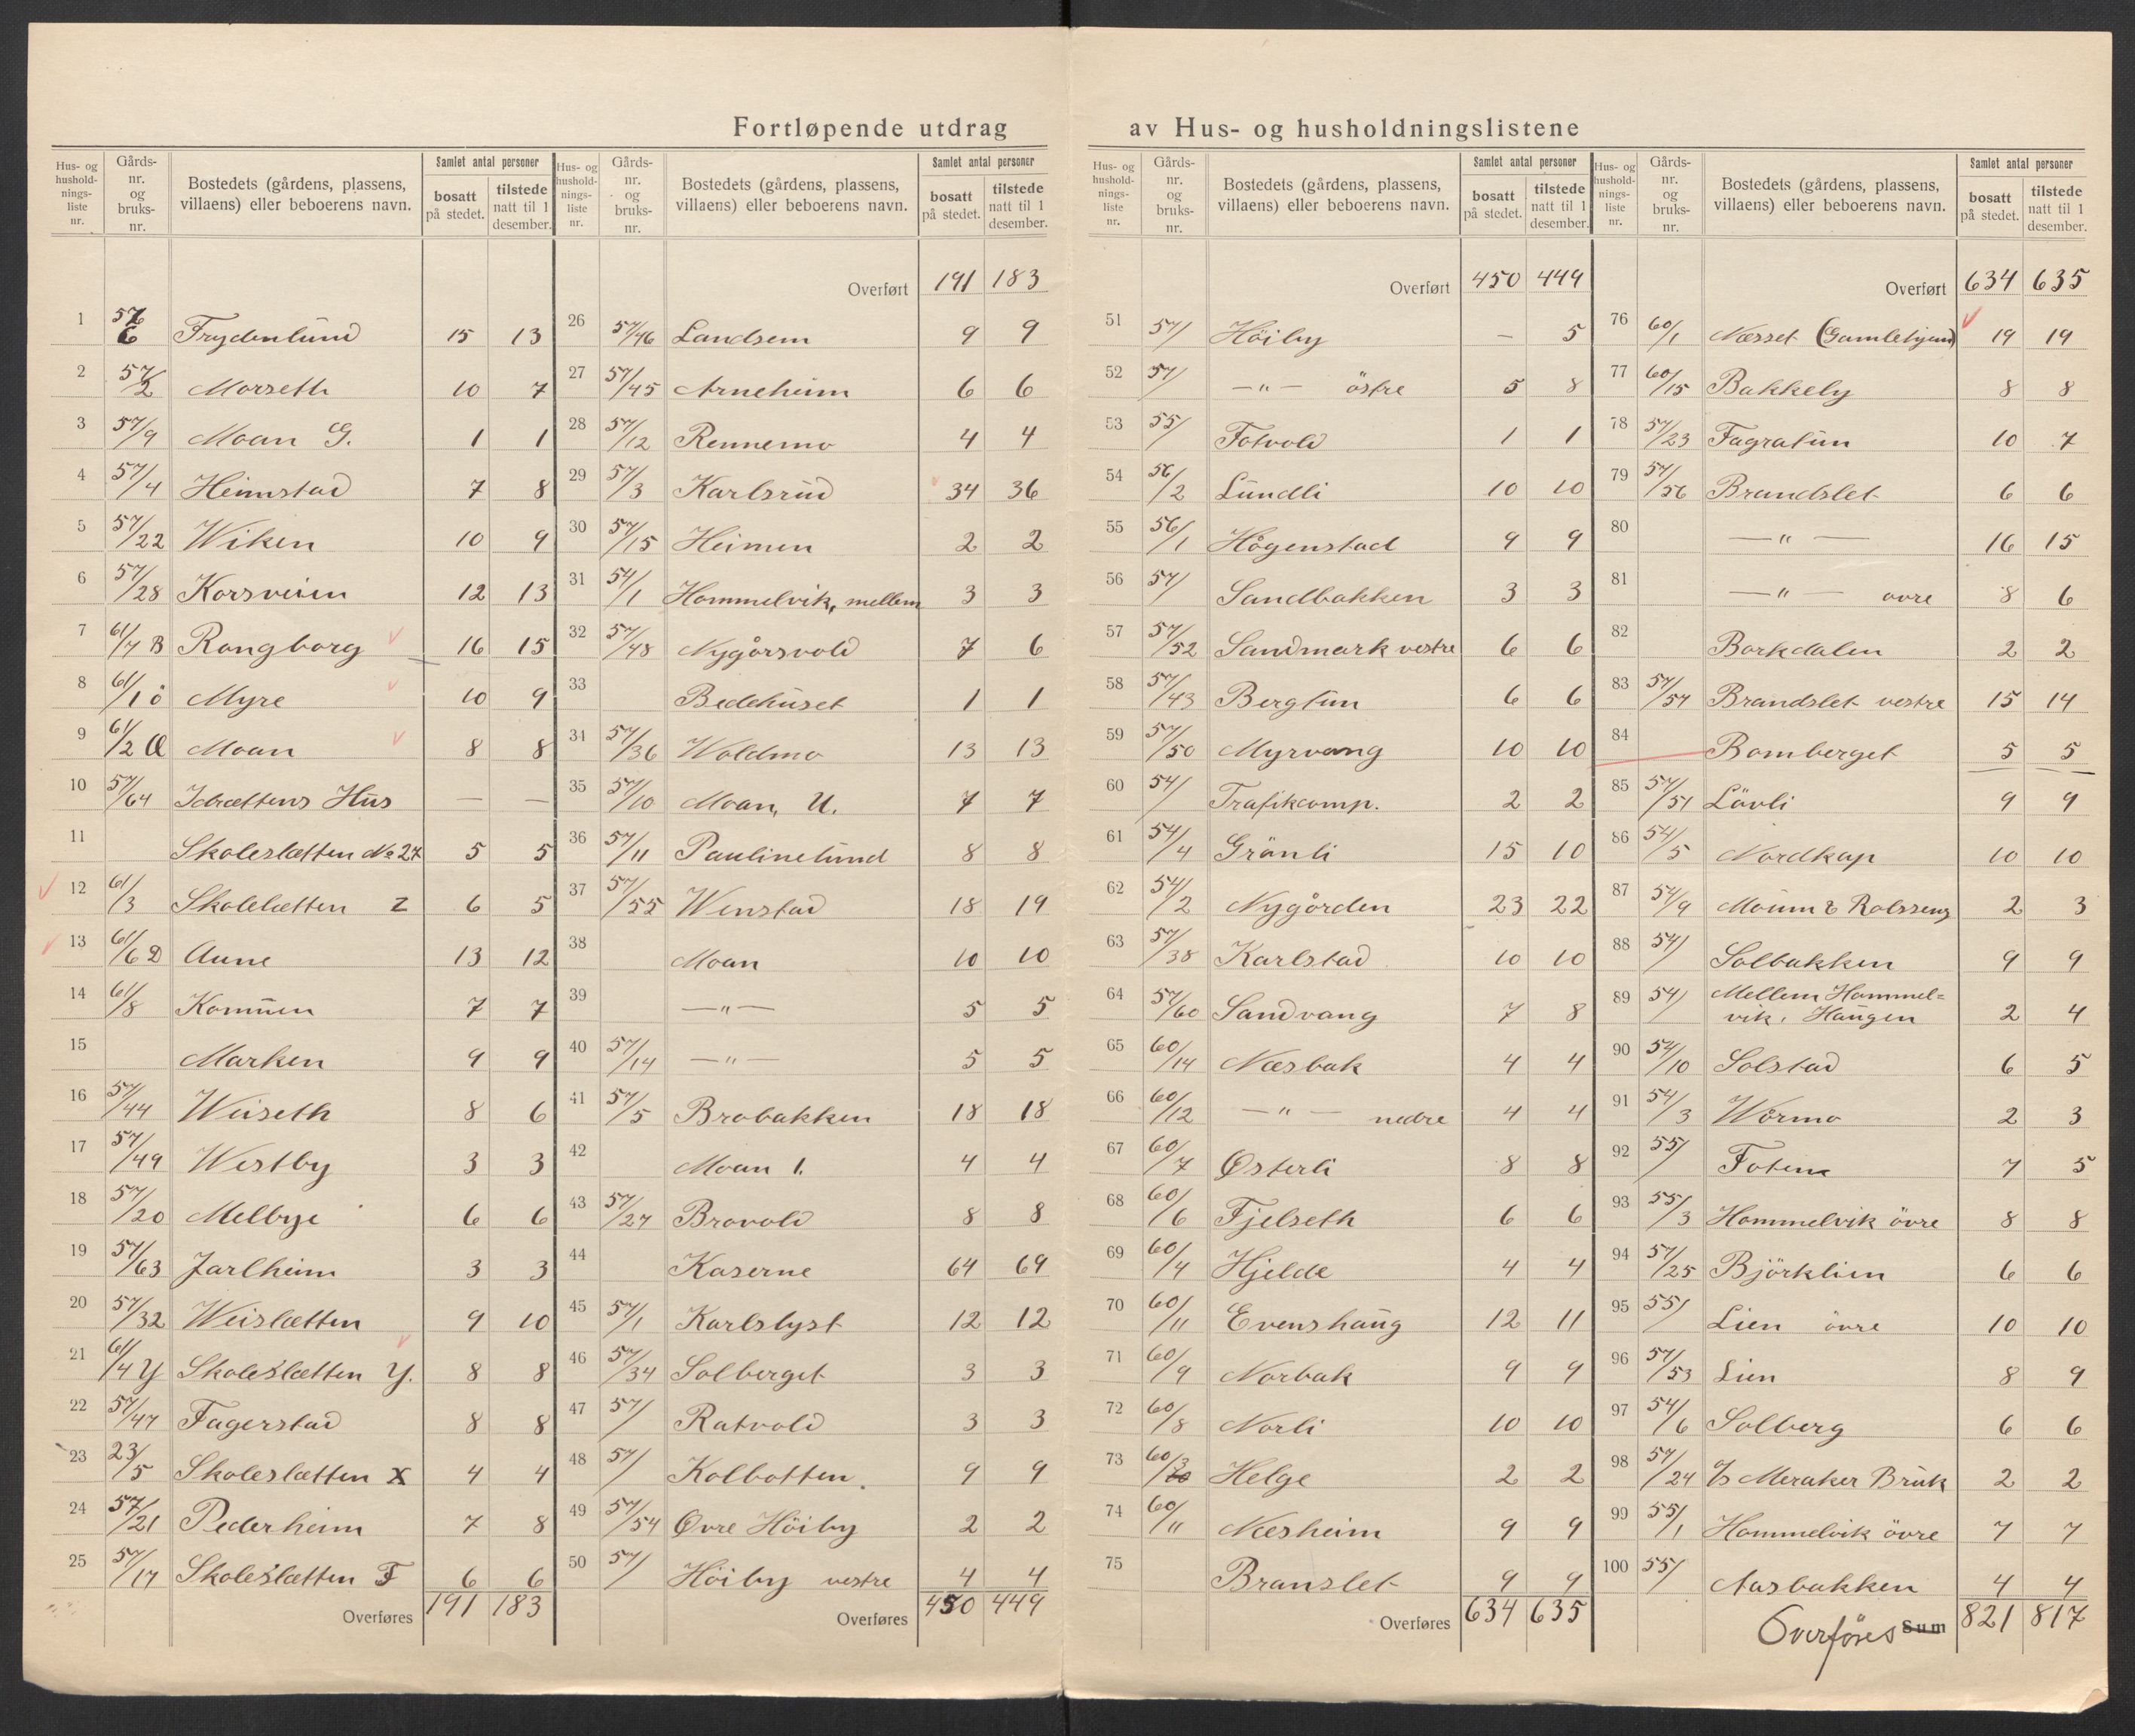 Fortløpende utdrag av Hus- og husholdningslistene
Hus- og husholdnings-liste nr. | Gårds-nr. og bruks-nr. | Bostedets (gårdens, plassens, villaens) eller beboerens navn. | Samlet antal personer | bosatt på stedet. | tilstede natt til 1 desember.
1 57/6 Frydenlund 15 13
2 57/2 Morseth 10 7
3 57/9 Moan G. 1 1
4 57/4 Heimstad 7 8
5 57/22 Wiken 10 9
6 57/28 Korsveien 12 13
7 61/7 B Rangborg 16 15
8 61/1 ö Myre 10 9
9 61/2 Œ Moan 8 8
10 57/64 Idrættens Hus — —
11 Skoleslætten No 27 5 5
12 61/3 Skolelætten Z 6 5
13 61/6 D Aune 13 12
14 61/8 Komüen 7 7
15 Marken 9 9
16 57/44 Weiseth 8 6
17 57/49 Westby 3 3
18 57/20 Melbye 6 6
19 57/63 Jarlheim 3 3
20 57/32 Weislætten 9 10
21 61/4 Y Skoleslætten Y. 8 8
22 57/47 Fagerstad 8 8
23 23/5 Skoleslætten X 4 4
24 57/21 Pederheim 7 8
25 57/17 Skoleslætten F 6 6
Overføres 191 183
Hus- og husholdnings-liste nr. | Gårds-nr. og bruks-nr. | Bostedets (gårdens, plassens, villaens) eller beboerens navn. | Samlet antal personer | bosatt på stedet. | tilstede natt til 1 desember.
Overført 191 183
26 57/46 Landsem 9 9
27 57/45 Arneheim 6 6
28 57/12 Rennemo 4 4
29 57/3 Karlsrud 34 36
30 57/15 Heimen 2 2
31 54/1 Hommelvik, mellem 3 3
32 57/48 Nygårsvold 7 6
33 Bedehuset 1 1
31 57/36 Woldmo 13 13
35 57/10 Moan, U. 7 7
36 57/11 Paulinelund 8 8
37 57/55 Wenstad 18 19
38 Moan 10 10
39 —"— 5 5
40 57/14 —"— 5 5
41 57/5 Brobakken 18 18
42 Moan 1. 4 4
43 57/27 Brovold 8 8
44 Kaserne 64 69
45 57/1 Karlslyst 12 12
46 57/34 Solberget 3 3
47 57/ Ratvold 3 3
48 57/ Kolbotten. 9 9
49 57/54 Øvre Höiby 2 2
50 57/ Höiby vestre 4 4
Overføres 450 449
Hus- og husholdnings-liste nr. | Gårds-nr. og bruks-nr. | Bostedets (gårdens, plassens, villaens) eller beboerens navn. | Samlet antal personer | bosatt på stedet. | tilstede natt til 1 desember.
Overført 450 449
51 57/ Höiby — 5
52 57/ —"— östre 5 8
53 55/ Fotvold 1 1
54 56/2 Lundli 10 10
55 56/1 Högenstad 9 9
56 57/ Sandbakken 3 3
57 57/52 Sandmark vestre 6 6
58 57/43 Bergtun 6 6
59 57/50 Myrvang 10 10
60 54/ Trafikcomp. 2 2
61 54/4 Grönli 15 10
62 54/2 Nygården 23 22
63 57/38 Karlstad 10 10
64 57/60 Sandvang 7 8
65 60/14 Næsbak 4 4
66 60/12 —"— nedre 4 4
67 60/7 Østerli 8 8
68 60/6 Fjelseth 6 6
69 60/4 Hjelde 4 4
70 60/11 Evenshaug 12 11
71 60/9 Norbak 9 9
72 60/8 Norli 10 10
73 60/3 Helge 2 2
74 60/11 Næsheim 9 9
75 Branslet 9 9
Overføres 634 635
Hus- og husholdnings-liste nr. | Gårds-nr. og bruks-nr. | Bostedets (gårdens, plassens, villaens) eller beboerens navn. | Samlet antal personer | bosatt på stedet. | tilstede natt til 1 desember.
Overført 634 635
76 60/1 Næsset (Gamlehjem) 19 19
77 60/15 Bakkely 8 8
78 57/23 Fagratun 10 7
79 57/56 Brandslet 6 6
80 —"— 16 15
81 —"— övre 8 6
82 Borkdalen 2 2
83 57/57 Brandslet vestre 15 14
84 Bomberget 5 5
85 57/51 Lövli 9 9
86 54/5 Nordkap 10 10
87 54/9 Moum & Rolssens 2 3
88 54/ Solbakken 9 9
89 54/ Mellem Hommel=
vik, Haugen 2 4
90 54/10 Solstad 6 5
91 54/3 Wörmo 2 3
92 55/ Foten 7 5
93 55/3 Hommelvik övre 8 8
94 57/25 Björklien 6 6
95 55/ Lien övre 10 10
96 57/53 Lien 8 9
97 54/6 Solberg 6 6
98 57/24 A/S Meraker Bruk 2 2
99 55/1 Hommelvik övre 7 7
100 55/ Aasbakken 4 4
Overföres Sum 821 817